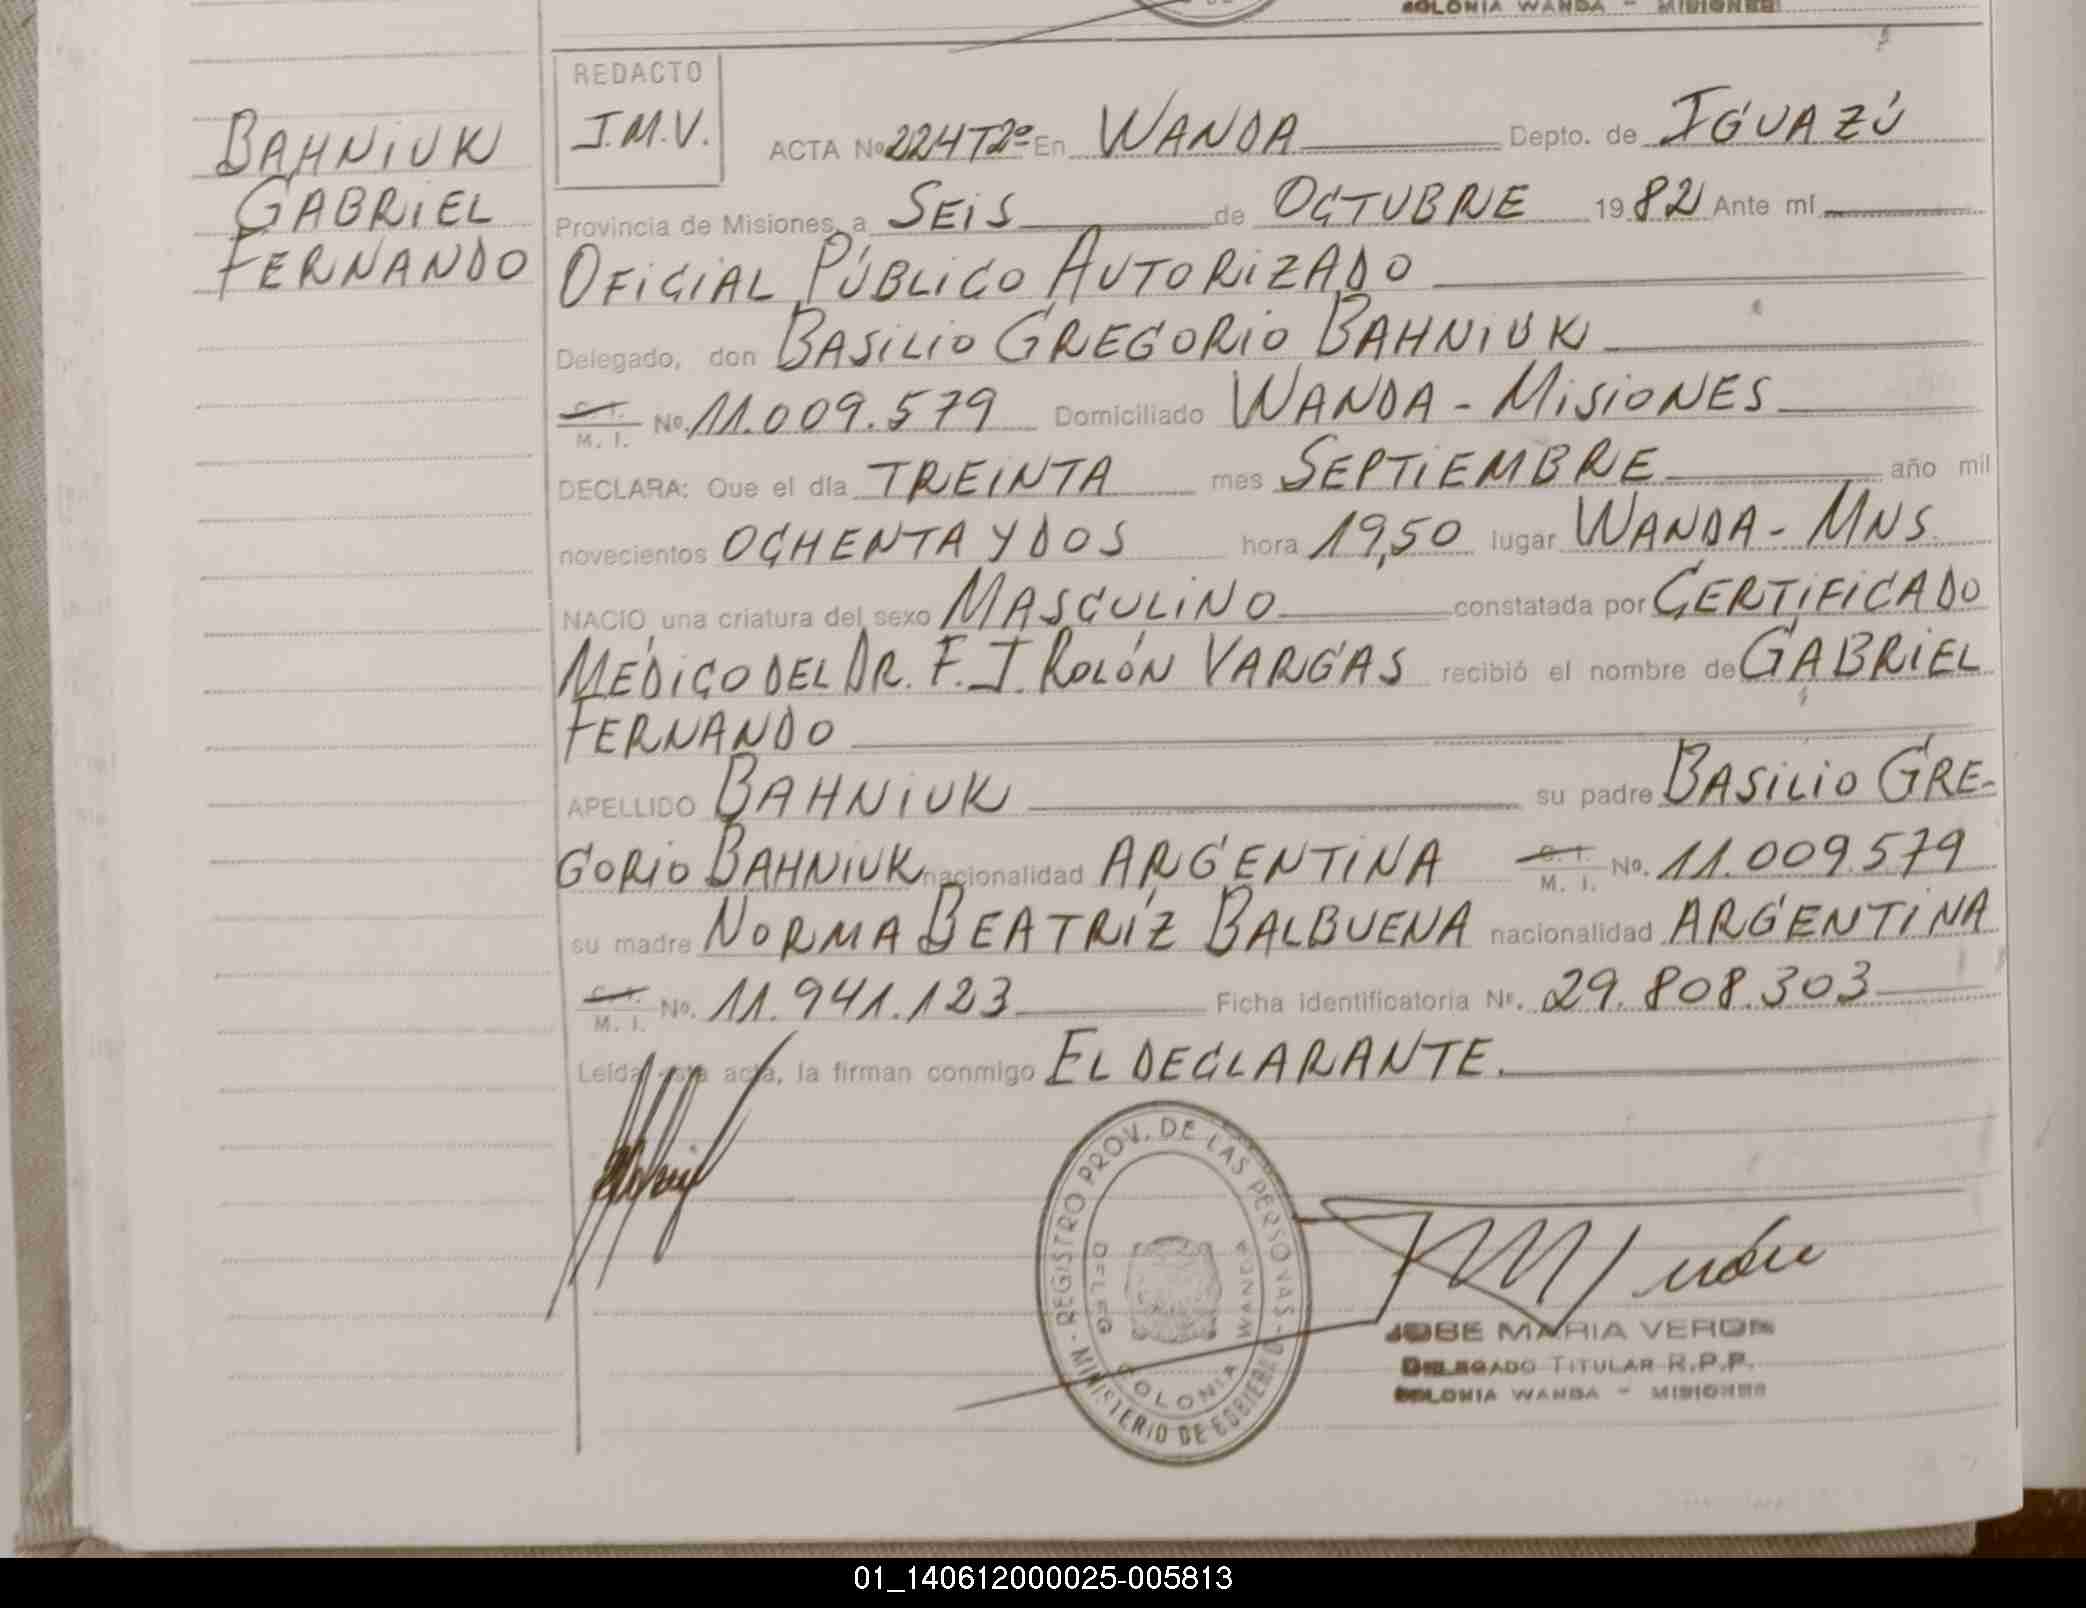 COLONIA WANDA - MISIONES
BAHNIUK
GABRIEL
FERNANDO
REDACTO
J.M.V.
ACTA Nº 224 Tº 2º En WANDA Depto. de IGUAZÚ
Provincia de Misiones, a SEIS de OCTUBRE 1982 Ante mí
OFICIAL PÚBLICO AUTORIZADO
Delegado, don BASILIO GREGORIO BAHNIUK
C. I.
M. I. Nº. 11.009.579 Domiciliado WANDA - MISIONES
DECLARA: Que el día TREINTA mes SEPTIEMBRE año mil
novecientos OCHENTA Y DOS hora 19,50 lugar WANDA - MNS.
NACIO una criatura del sexo MASCULINO constatada por CERTIFICADO
MÉDICO DEL DR. F. J. ROLÓN VARGAS recibió el nombre de GABRIEL
FERNANDO
APELLIDO BAHNIUK su padre BASILIO GRE-
GORIO BAHNIUK nacionalidad ARGENTINA C. I. M. I. Nº. 11.009.579
su madre NORMA BEATRÍZ BALBUENA nacionalidad ARGENTINA
C. I.
M. I. Nº. 11.941.123 Ficha identificatoria Nº. 29.808.303
Leída esta acta, la firman conmigo EL DECLARANTE.
REGISTRO PROV. DE LAS PERSONAS - MINISTERIO DE GOBIERNO
DELEG COLONIA WANDA
JOSE MARIA VERON
DELEGADO TITULAR R.P.P.
COLONIA WANDA - MISIONES
01_140612000025-005813